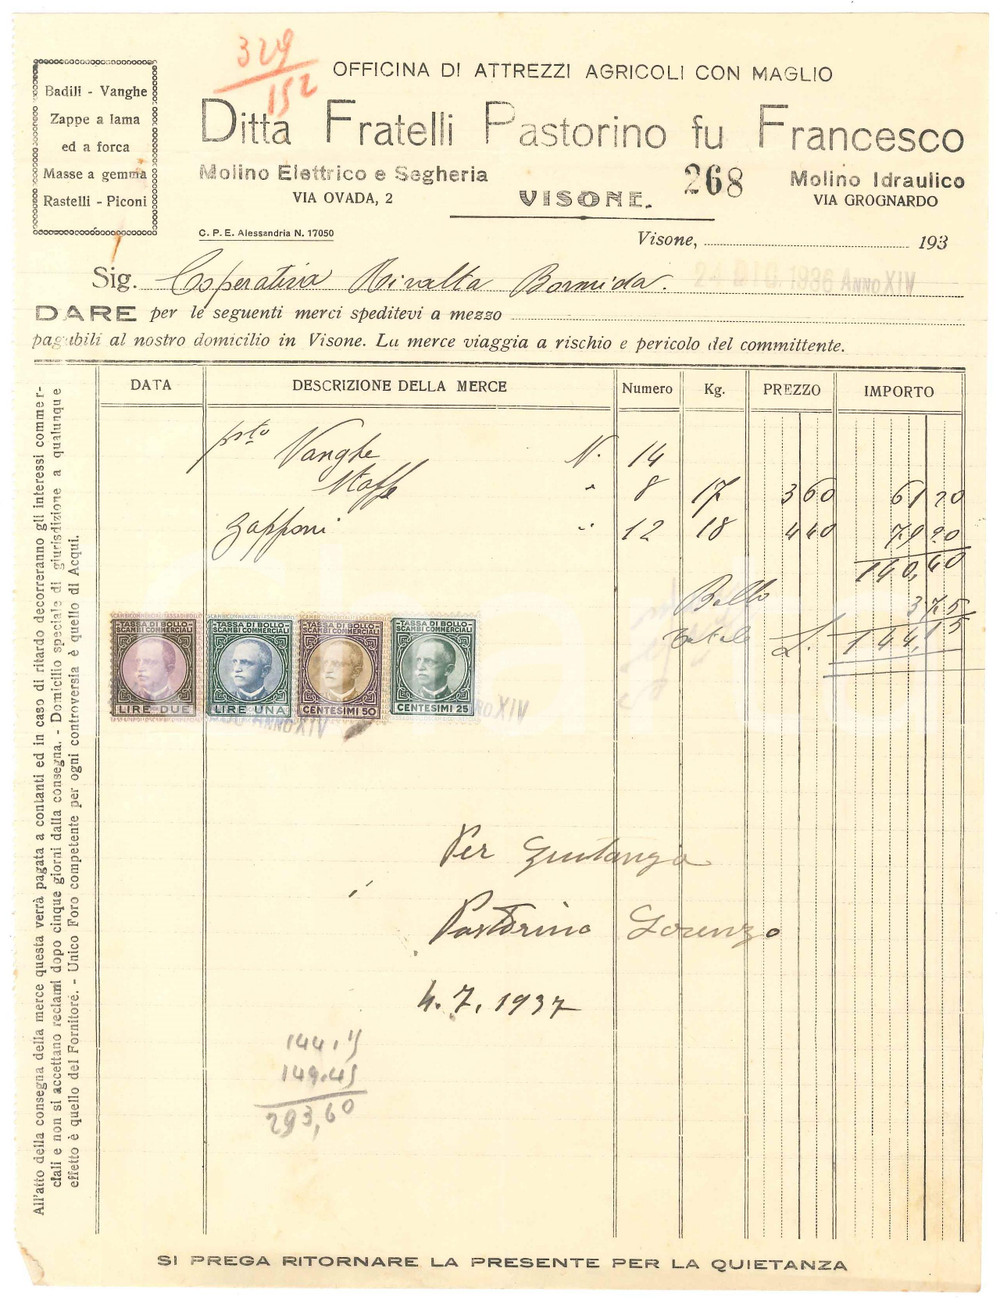 329
152
OFFICINA DI ATTREZZI AGRICOLI CON MAGLIO
Ditta Fratelli Pastorino fu Francesco
Badili - Vanghe
Zappe a lama
ed a forca
Masse a gemma
Rastelli - Piconi
Molino Elettrico e Segheria
VIA OVADA, 2
VISONE.
268
Molino Idraulico
VIA GROGNARDO
C. P. E. Alessandria N. 17050
Visone, 193
24 DIC. 1936 ANNO XIV
Sig. Coperativa Rivalta Bormida.
DARE per le seguenti merci speditevi a mezzo
pagabili al nostro domicilio in Visone. La merce viaggia a rischio e pericolo del committente.
DATA DESCRIZIONE DELLA MERCE Numero Kg. PREZZO IMPORTO
Vanghe N. 14
" 8 17 3 60 61 20
Zapponi " 12 18 4 40 79 20
140,40
Bollo 3 75
Totale L. 144,15
TASSA DI BOLLO
SCAMBI COMMERCIALI
LIRE DUE
TASSA DI BOLLO
SCAMBI COMMERCIALI
LIRE UNA
TASSA DI BOLLO
SCAMBI COMMERCIALI
CENTESIMI 50
TASSA DI BOLLO
SCAMBI COMMERCIALI
CENTESIMI 25
ANNO XIV
NO XIV
Per Quietanza
Pastorino Lorenzo
4. 7. 1937
144.15
149.45
293,60
All'atto della consegna della merce questa verrà pagata a contanti ed in caso di ritardo decorreranno gli interessi commer-
ciali e non si accettano reclami dopo cinque giorni dalla consegna. - Domicilio speciale di giurisdizione a qualunque
effetto è quello del Fornitore. - Unico Foro competente per ogni controversia è quello di Acqui.
SI PREGA RITORNARE LA PRESENTE PER LA QUIETANZA